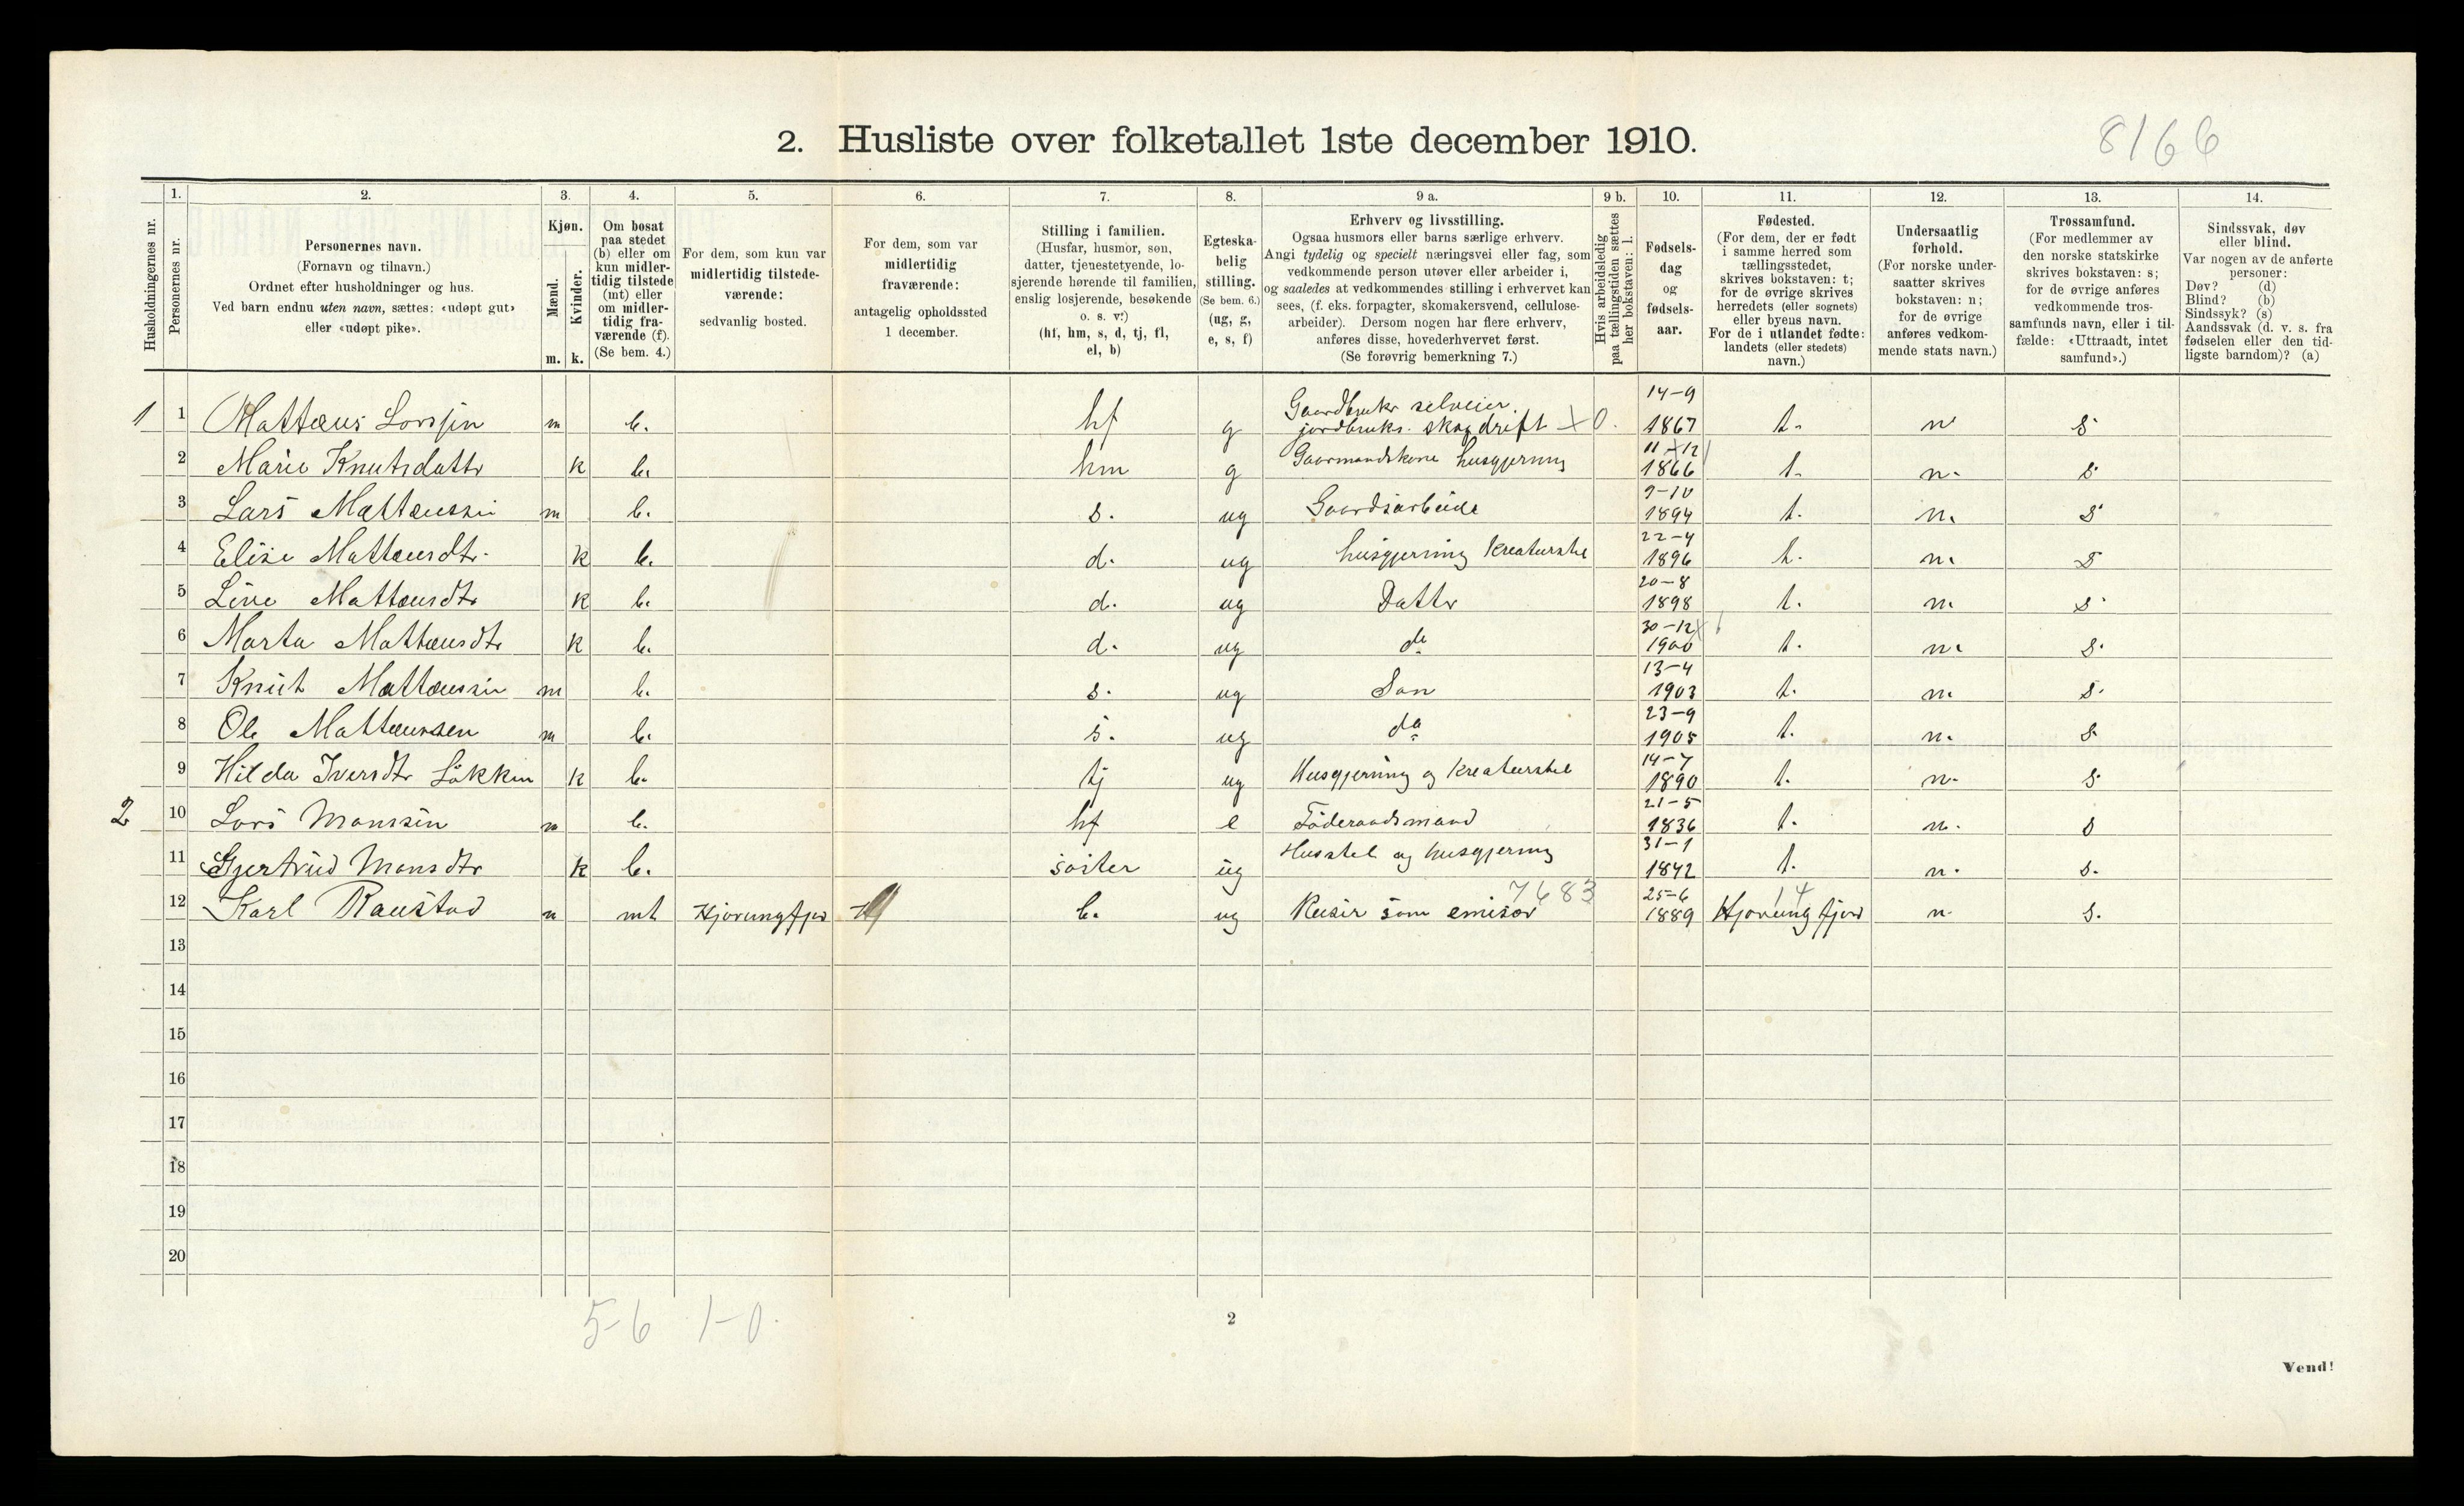 2. Husliste over folketallet 1ste december 1910.
8166
Husholdningernes nr.
1.
Personernes nr.
2.
Personernes navn.
(Fornavn og tilnavn.)
Ordnet efter husholdninger og hus.
Ved barn endnu uten navn, sættes: «udøpt gut»
eller «udøpt pike».
3.
Kjøn.
Mænd.
Kvinder.
m. k.
4.
Om bosat
paa stedet
(b) eller om
kun midler-
tidig tilstede
(mt) eller
om midler-
tidig fra-
værende (f).
(Se bem. 4.)
5.
For dem, som kun var
midlertidig tilstede-
værende:
sedvanlig bosted.
6.
For dem, som var
midlertidig
fraværende:
antagelig opholdssted
1 december.
7.
Stilling i familien.
(Husfar, husmor, søn,
datter, tjenestetyende, lo-
sjerende hørende til familien,
enslig losjerende, besøkende
o. s. v.)
(hf, hm, s, d, tj, fl,
el, b)
8.
Egteska-
belig
stilling.
(Se bem. 6.)
(ug, g,
e, s, f)
9 a.
Erhverv og livsstilling.
Ogsaa husmors eller barns særlige erhverv.
Angi tydelig og specielt næringsvei eller fag, som
vedkommende person utøver eller arbeider i,
og saaledes at vedkommendes stilling i erhvervet kan
sees, (f. eks. forpagter, skomakersvend, cellulose-
arbeider). Dersom nogen har flere erhverv,
anføres disse, hovederhvervet først.
(Se forøvrig bemerkning 7.)
9 b.
Hvis arbeidsledig
paa tællingstiden sættes
her bokstaven: l.
10.
Fødsels-
dag
og
fødsels-
aar.
11.
Fødested.
(For dem, der er født
i samme herred som
tællingsstedet,
skrives bokstaven: t;
for de øvrige skrives
herredets (eller sognets)
eller byeus navn.
For de i utlandet fødte:
landets (eller stedets)
navn.)
12.
Undersaatlig
forhold.
(For norske under-
saatter skrives
bokstaven: n;
for de øvrige
anføres vedkom-
mende stats navn.)
13.
Trossamfund.
(For medlemmer av
den norske statskirke
skrives bokstaven: s;
for de øvrige anføres
vedkommende tros-
samfunds navn, eller i til-
fælde: «Uttraadt, intet
samfund».)
14.
Sindssvak, døv
eller blind.
Var nogen av de anførte
personer:
Døv? (d)
Blind? (b)
Sindssyk? (s)
Aandssvak (d. v. s. fra
fødselen eller den tid-
ligste barndom)? (a)
1 1 Mattæus Larsen m b. hf g Gaardbruker selveier. jordbruks. skogdrift X0. 14-9 1867 t. n s.
2 Marie Knutsdattr k b. hm g Gaarmandskone husgjerning 11-12 1866 t. n. s.
3 Lars Mattæussen m b. s. ug Gaardsarbeide 9-10 1894 t. n. s.
4 Elise Mattæusdtr. k b. d. ug husgjerning Kreaturstel 22-4 1896 t. n. s
5 Line Mattæusdtr k b. d. ug Dattr 20-8 1898 t. n. s.
6 Marta Mattæusdtr k b. d. ug do 30-12 1900 t. n. s.
7 Knut Mattæussen m b. s. ug Søn 13-4 1903 t. n. s.
8 Ole Mattæussen m b. s. ug do 23-9 1905 t. n. s.
9 Hilda Iversdtr Løkken k b. tj ug Husgjerning og Kreaturstel 14-7 1890 t. n. s.
2 10 Lars Monssen m b. hf e Føderaadsmand 21-5 1836 t. n. s
11 Gjertrud Monsdtr k b. søster ug Husstel og husgjerning 31-1 1842 t. n. s.
12 Karl Raustad m mt Hjørungfjor b. ug Reiser som emisør 7683 25-6 1889 Hjørungfjor 14 n. s.
13
14
15
16
17
18
19
20
5-6 1-0.
2
Vend!